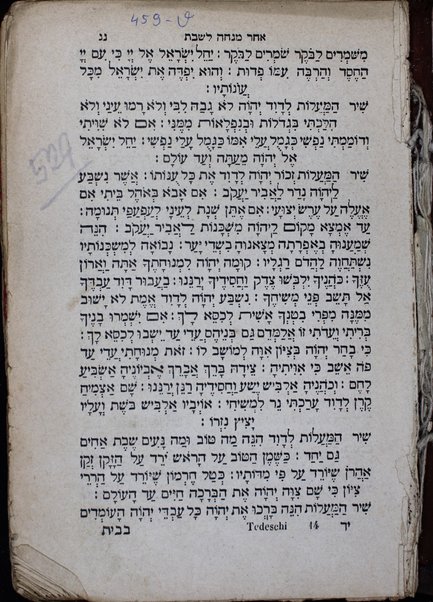 459-ט
529
אחר מנחה לשבת
נג
מִשֹּׁמְרִים לַבֹּקֶר שֹׁמְרִים לַבֹּקֶר : יַחֵל יִשְׂרָאֵל אֶל יְיָ כִּי עִם יְיָ
הַחֶסֶד וְהַרְבֵּה עִמּוֹ פְדוּת : וְהוּא יִפְדֶּה אֶת יִשְׂרָאֵל מִכֹּל
עֲוֹנוֹתָיו :
שִׁיר הַמַּעֲלוֹת לְדָוִד יְהֹוָה לֹא גָבַהּ לִבִּי וְלֹא רָמוּ עֵינַי וְלֹא
הִלַּכְתִּי בִּגְדֹלוֹת וּבְנִפְלָאוֹת מִמֶּנִּי : אִם לֹא שִׁוִּיתִי
וְדוֹמַמְתִּי נַפְשִׁי כְּגָמֻל עֲלֵי אִמּוֹ כַּגָּמֻל עָלַי נַפְשִׁי : יַחֵל יִשְׂרָאֵל
אֶל יְהֹוָה מֵעַתָּה וְעַד עוֹלָם :
שִׁיר הַמַּעֲלוֹת זְכוֹר יְהֹוָה לְדָוִד אֶת כָּל עֻנּוֹתוֹ : אֲשֶׁר נִשְׁבַּע
לַיהֹוָה נָדַר לַאֲבִיר יַעֲקֹב : אִם אָבֹא בְּאֹהֶל בֵּיתִי אִם
אֶעֱלֶה עַל עֶרֶשׂ יְצוּעָי : אִם אֶתֵּן שְׁנָת לְעֵינָי לְעַפְעַפַּי תְּנוּמָה :
עַד אֶמְצָא מָקוֹם לַיהֹוָה מִשְׁכָּנוֹת לַאֲבִיר יַעֲקֹב : הִנֵּה
שְׁמַעֲנוּהָ בְאֶפְרָתָה מְצָאנוּהָ בִּשְׂדֵי יָעַר : נָבוֹאָה לְמִשְׁכְּנוֹתָיו
נִשְׁתַּחֲוֶה לַהֲדֹם רַגְלָיו : קוּמָה יְהֹוָה לִמְנוּחָתֶךָ אַתָּה וַאֲרוֹן
עֻזֶּךָ : כֹּהֲנֶיךָ יִלְבְּשׁוּ צֶדֶק וַחֲסִידֶיךָ יְרַנֵּנוּ : בַּעֲבוּר דָּוִד עַבְדֶּךָ
אַל תָּשֵׁב פְּנֵי מְשִׁיחֶךָ : נִשְׁבַּע יְהֹוָה לְדָוִד אֱמֶת לֹא יָשׁוּב
מִמֶּנָּה מִפְּרִי בִטְנְךָ אָשִׁית לְכִסֵּא לָךְ : אִם יִשְׁמְרוּ בָנֶיךָ
בְּרִיתִי וְעֵדֹתִי זוֹ אֲלַמְּדֵם גַּם בְּנֵיהֶם עֲדֵי עַד יֵשְׁבוּ לְכִסֵּא לָךְ :
כִּי בָחַר יְהֹוָה בְּצִיּוֹן אִוָּהּ לְמוֹשָׁב לוֹ : זֹאת מְנוּחָתִי עֲדֵי עַד
פֹּה אֵשֵׁב כִּי אִוִּיתִיהָ : צֵידָהּ בָּרֵךְ אֲבָרֵךְ אֶבְיוֹנֶיהָ אַשְׂבִּיעַ
לָחֶם : וְכֹהֲנֶיהָ אַלְבִּישׁ יֶשַׁע וַחֲסִידֶיהָ רַנֵּן יְרַנֵּנוּ : שָׁם אַצְמִיחַ
קֶרֶן לְדָוִד עָרַכְתִּי נֵר לִמְשִׁיחִי : אוֹיְבָיו אַלְבִּישׁ בֹּשֶׁת וְעָלָיו
יָצִיץ נִזְרוֹ :
שִׁיר הַמַּעֲלוֹת לְדָוִד הִנֵּה מַה טּוֹב וּמַה נָּעִים שֶׁבֶת אַחִים
גַּם יָחַד : כַּשֶּׁמֶן הַטּוֹב עַל הָרֹאשׁ יֹרֵד עַל הַזָּקָן זְקַן
אַהֲרֹן שֶׁיּוֹרֵד עַל פִּי מִדּוֹתָיו : כְּטַל חֶרְמוֹן שֶׁיּוֹרֵד עַל הַרְרֵי
צִיּוֹן כִּי שָׁם צִוָּה יְהֹוָה אֶת הַבְּרָכָה חַיִּים עַד הָעוֹלָם :
שִׁיר הַמַּעֲלוֹת הִנֵּה בָּרְכוּ אֶת יְהֹוָה כָּל עַבְדֵי יְהֹוָה הָעוֹמְדִים
יד 14 Tedeschi בבית